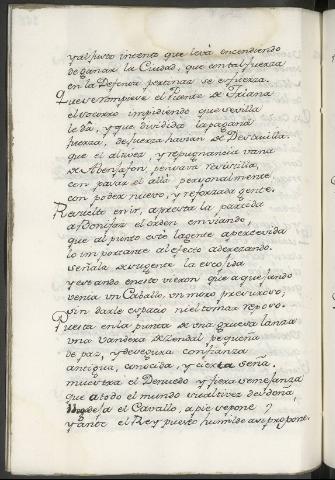 y al justo intento que leva encendiendo
de ganar la Ciudad, que con tal fuerza
en la Defensa pertinaz se esfuerza.
Que se rompiere el Puente de Triana
el socorro impidiendo que Sevilla
le dà, y que dividida la pagana
fuerza, de fuerza hauian de Destruilla.
que el altivez, y repugnancia vana
de Abenjafon, pensava
con pasar el allà personalmente
con poder nuevo, y reforzada gente.
Resuelto en ir, apresta la partida
a Bonifaz el orden enviando,
que al punto este la gente apercevida
lo importante al efecto aderezando.
señala de su gente la escojida
y estando en esto vieron que aquejando
venia un Caballo, un moro presuroso,
sin darle espacio ni el tomar reposo.
Puesta en la punta de una gruesa lanza
una vandera de Zendal pequeña
de paz, y de segura confianza
antigua, conocida, y cierta seña.
muestra el Denuedo y fiera semejanza
que a todo el mundo su altivez desdeña,
llega desa el Cavallo, a pie se pone
y ante el Rey puesto humilde asi propone.